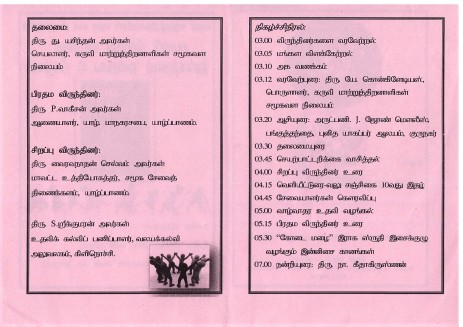 தலைமை:
திரு து. யசிந்தன் அவர்கள்
செயலாளர், கருவி மாற்றுத்திறனாளிகள் சமூகவள
நிலையம்
பிரதம விருந்தினர்:
திரு P.வாகீசன் அவர்கள்
ஆணையாளர், யாழ். மாநகரசபை, யாழ்ப்பாணம்.
சிறப்பு விருந்தினர்:
திரு வைரவநாதன் செல்வம் அவர்கள்
மாவட்ட உத்தியோகத்தர், சமூக சேவைத்
திணைக்களம், யாழ்ப்பாணம்.
திரு S.ஸ்ரீக்குமரன் அவர்கள்
உதவிக் கல்விப் பணிப்பாளர், வலயக்கல்வி
அலுவலகம், கிளிநொச்சி.
நிகழ்ச்சிநிரல்:
03.00 விருந்தினர்களை வரவேற்றல்:
03.05 மங்கள விளக்கேற்றல்:
03.10 அக வணக்கம்:
03.12 வரவேற்புரை: திரு யே. கொன்கிளேடியஸ்,
பொருளாளர், கருவி மாற்றுத்திறனாளிகள்
சமூகவள நிலையம்
03.20 ஆசியுரை: அருட்பணி. J. ஜோண் மௌலீஸ்,
பங்குத்தந்தை, புனித யாகப்பர் ஆலயம், குருநகர்
03.30 தலைமையுரை
03.45 செயற்பாட்டறிக்கை வாசித்தல்:
04.00 சிறப்பு விருந்தினர் உரை
04.15 வெளியீட்டுரை-வலு சஞ்சிகை 10வது இதழ்
04.45 சேவையாளர்கள் கௌரவிப்பு
05.00 வாழ்வாதார உதவி வழங்கல்:
05.15 பிரதம விருந்தினர் உரை
05.30 “கோடை மழை” இராக ஸ்ருதி இசைக்குழு
வழங்கும் இன்னிசை கானங்கள்
07.00 நன்றியுரை: திரு. நா. கீதாகிருஸ்ணன்